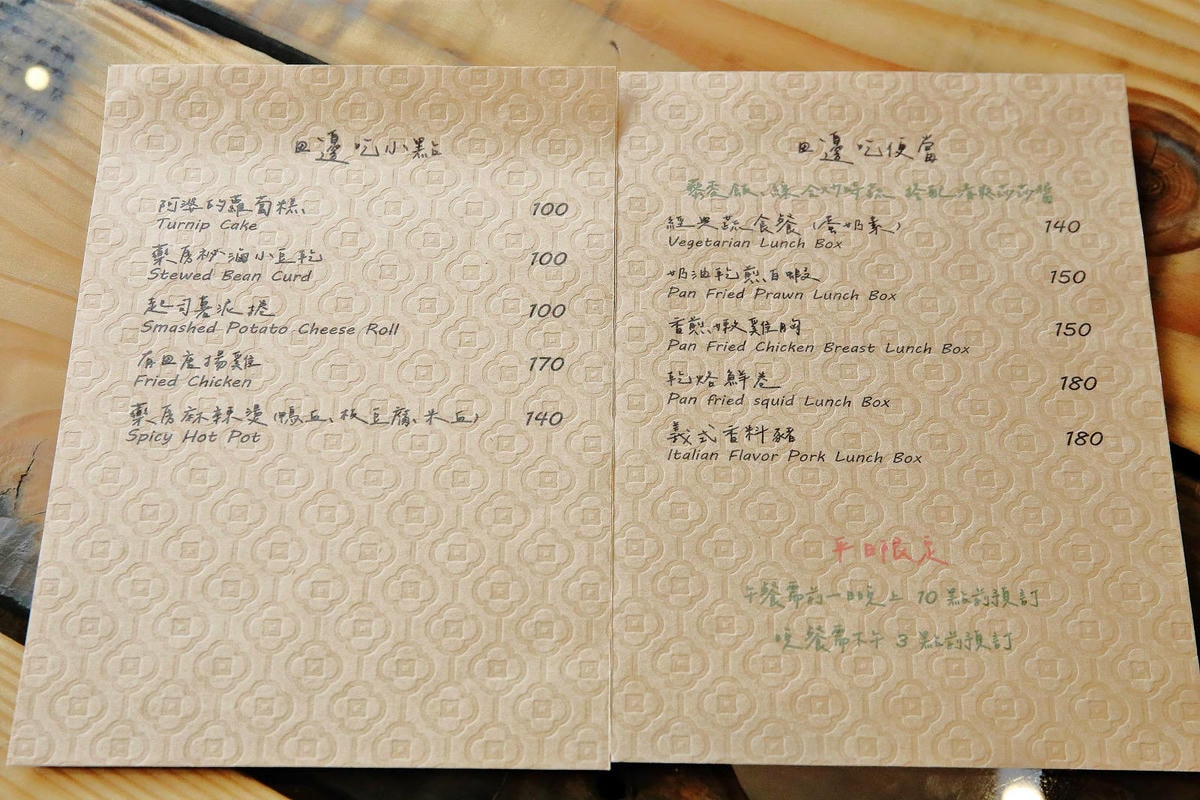 田邊吃小點
阿婆的蘿蔔糕 100
Turnip Cake
藥房祕滷小豆乾 100
Stewed Bean Curd
起司薯泥捲 100
Smashed Potato Cheese Roll
有田唐揚雞 170
Fried Chicken
藥房麻辣燙(鴨血、板豆腐、米血) 140
Spicy Hot Pot
田邊吃便當
藜麥飯、綜合炒時蔬 搭配 莎莎醬
經典蔬食餐(蛋奶素) 140
Vegetarian Lunch Box
奶油乾煎白蝦 150
Pan Fried Prawn Lunch Box
香煎嫩雞胸 150
Pan Fried Chicken Breast Lunch Box
乾烙鮮卷 180
Pan fried squid Lunch Box
義式香料豬 180
Italian Flavor Pork Lunch Box
平日限定
午餐需前一日晚上 10 點前預訂
晚餐需下午 3 點前預訂